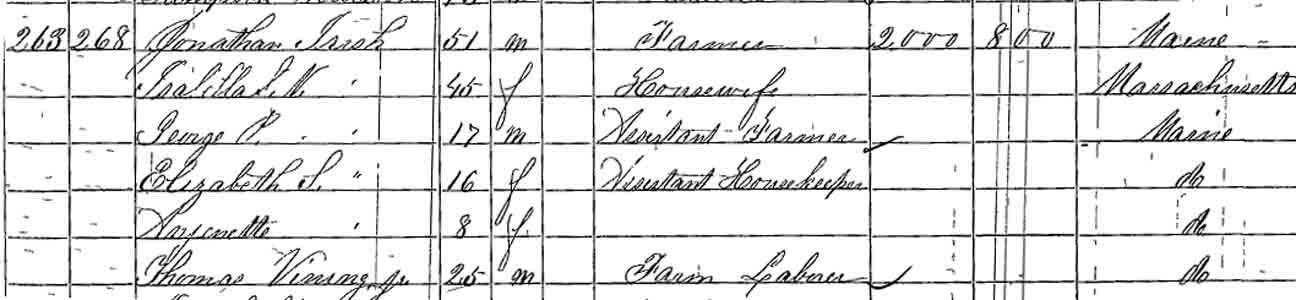 263 268 Jonathan Irish 51 m Farmer 2000 800 Maine "
Isabella N. " 45 f Housewife Massachusetts
George P. " 17 m Assistant Farmer Maine
Elizabeth S. " 16 f Assistant Housekeeper do
" 8 f do
Thomas Vining Jr. 25 m Farm Laborer do